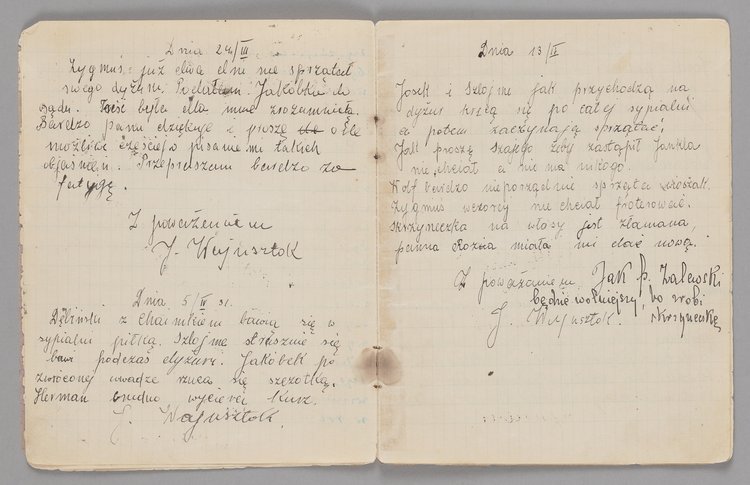 Dnia 24/III
Zygmuś już dwa dni nie sprzątał
swego dyżuru. Podałem Jakóbka do
sądu. Treść była dla mnie zrozumiała.
Bardzo panu dziękuję i proszę o ile
możliwe częściej o pisanie mi takich
objaśnień. Przepraszam bardzo za
fatygę.
Z poważaniem
J. Wajusztok
Dnia 5/IV 31.
Dębiński z Chaimkiem bawią się w
sypialni piłką. Szlojme strasznie się
bawi podczas dyżuru. Jakóbek po
zwróconej uwadze rzuca się szczotką.
Herman brudno wyciera kurz.
J. Wajusztok.
Dnia 13/IV
Josek i Szlojme jak przychodzą na
dyżur kręcą się po całej sypialni
a potem zaczynają sprzątać,
Jak proszę żeby zastąpił Jankla
nie chciał a nie ma nikogo.
Wolf bardzo nieporządnie sprząta
Zygmuś wczoraj nie chciał froterować.
Skrzyneczka na włosy jest złamana,
panna Rózia miała mi dać nową.
Z poważaniem
J. Wajusztok.
Jak p. Zalewski
będzie wolniejszy, to zrobi
skrzynenkę